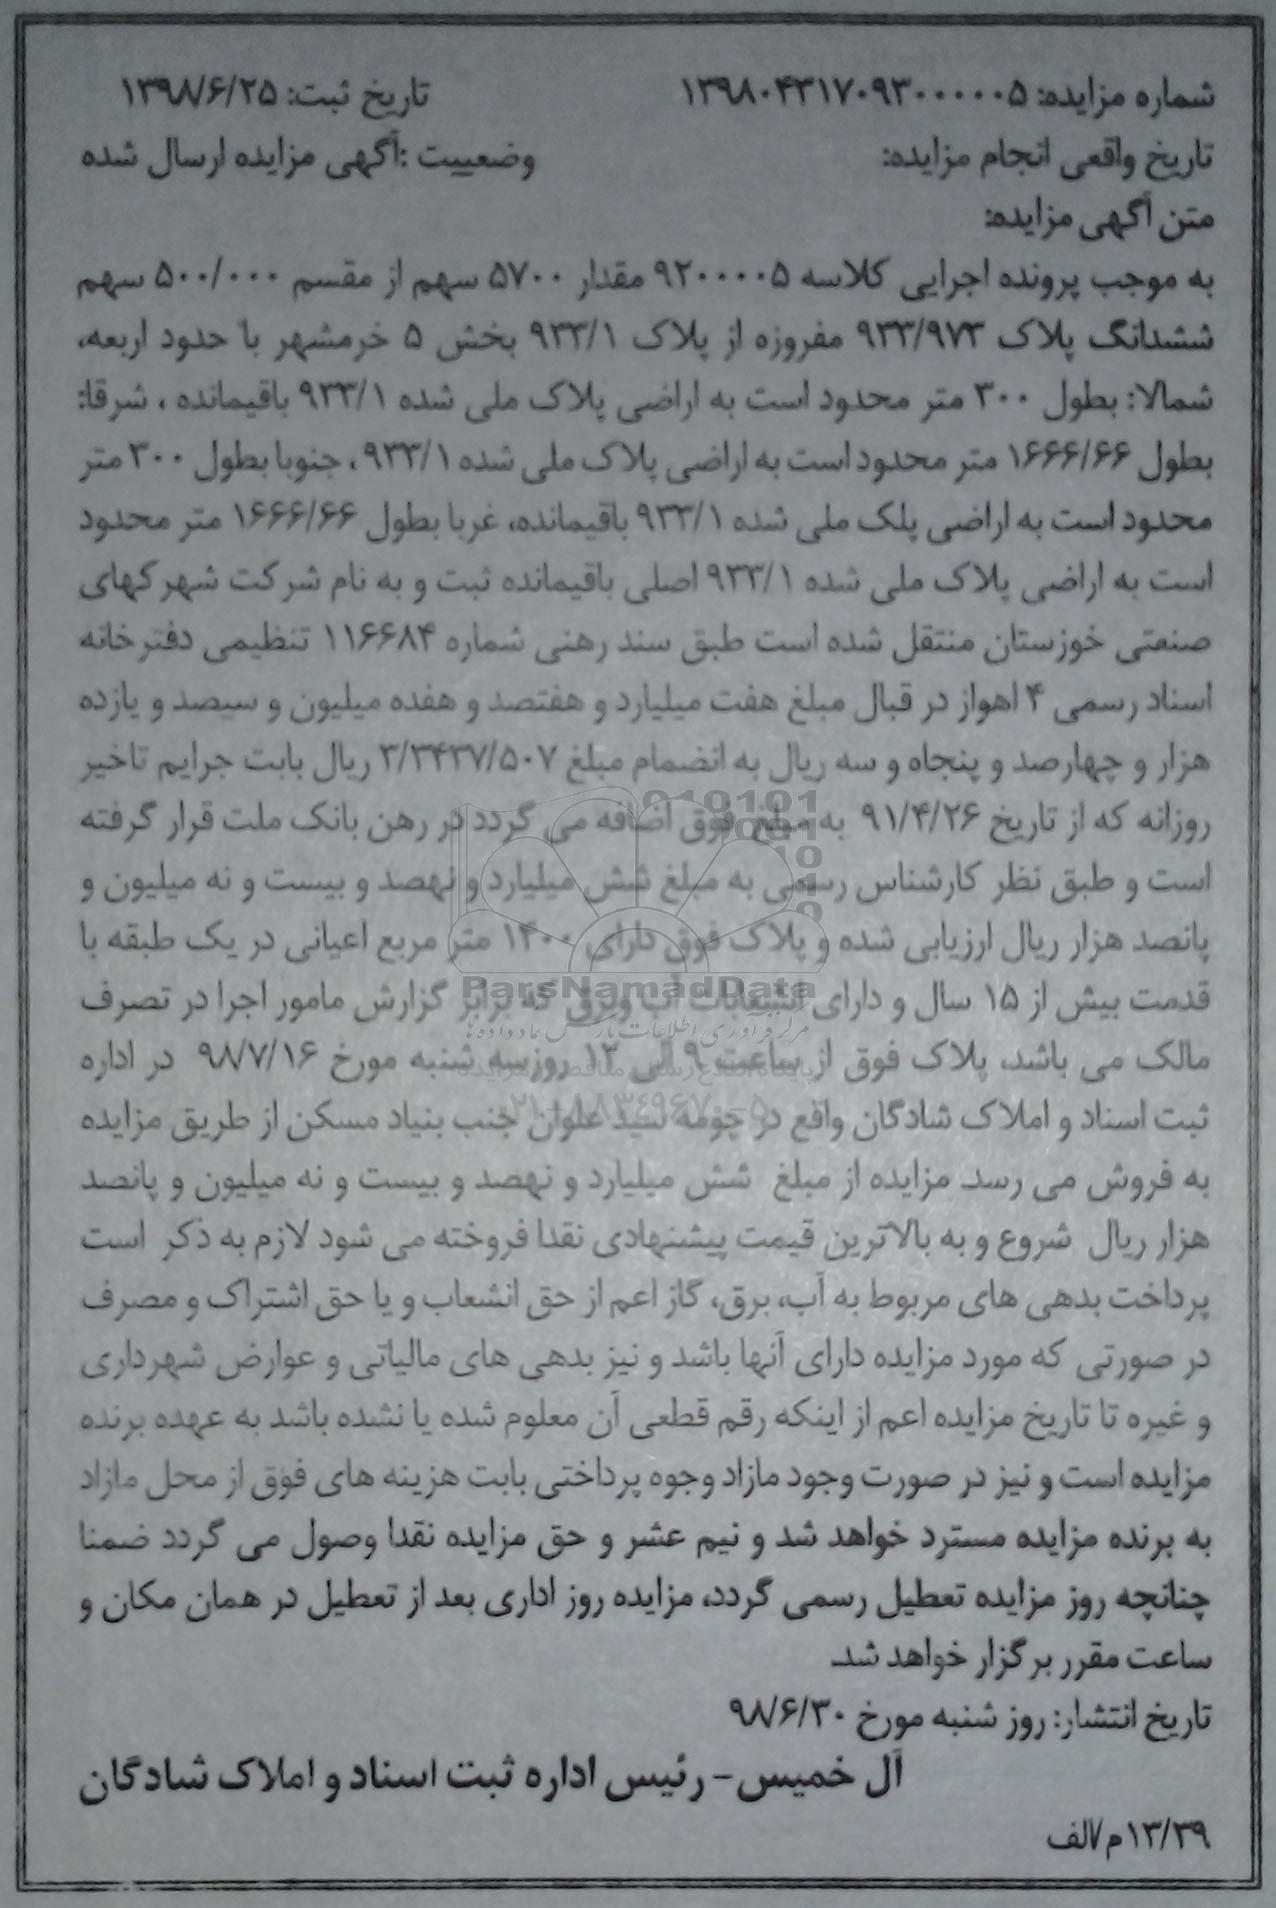 شماره مزایده: ۱۳۹۸۰۴۳۱۷۰۹۳۰۰۰۰۰۵ تاریخ ثبت: ۱۳۹۸/۶/۲۵
تاریخ واقعی انجام مزایده: وضعییت :آگهی مزایده ارسال شده
متن آگهی مزایده:
به موجب پرونده اجرایی کلاسه ۹۲۰۰۰۰۵ مقدار ۵۷۰۰ سهم از مقسم ۵۰۰/۰۰۰ سهم
ششدانگ پلاک ۹۳۳/۹۷۳ مفروزه از پلاک ۹۳۳/۱ بخش ۵ خرمشهر با حدود اربعه،
شمالا: بطول ۳۰۰ متر محدود است به اراضی پلاک ملی شده ۹۳۳/۱ باقیمانده ، شرقا:
بطول ۱۶۶۶/۶۶ متر محدود است به اراضی پلاک ملی شده ۹۳۳/۱ ، جنوبا بطول ۳۰۰ متر
محدود است به اراضی پلک ملی شده ۹۳۳/۱ باقیمانده، غربا بطول ۱۶۶۶/۶۶ متر محدود
است به اراضی پلاک ملی شده ۹۳۳/۱ اصلی باقیمانده ثبت و به نام شرکت شهرکهای
صنعتی خوزستان منتقل شده است طبق سند رهنی شماره ۱۱۶۶۸۴ تنظیمی دفترخانه
اسناد رسمی ۴ اهواز در قبال مبلغ هفت میلیارد و هفتصد و هفده میلیون و سیصد و یازده
هزار و چهارصد و پنجاه و سه ریال به انضمام مبلغ ۳/۳۴۳۷/۵۰۷ ریال بابت جرایم تاخیر
روزانه که از تاریخ ۹۱/۴/۲۶ به مبلغ فوق اضافه می گردد در رهن بانک ملت قرار گرفته
است و طبق نظر کارشناس رسمی به مبلغ شش میلیارد و نهصد و بیست و نه میلیون و
پانصد هزار ریال ارزیابی شده و پلاک فوق دارای ۱۴۰۰ متر مربع اعیانی در یک طبقه با
قدمت بیش از ۱۵ سال و دارای انشعابات آب وبرق که برابر گزارش مامور اجرا در تصرف
مالک می باشد، پلاک فوق از ساعت ۹ الی ۱۲ روزسه شنبه مورخ ۹۸/۷/۱۶ در اداره
ثبت اسناد و املاک شادگان واقع در چومه سید علوان جنب بنیاد مسکن از طریق مزایده
به فروش می رسد. مزایده از مبلغ شش میلیارد و نهصد و بیست و نه میلیون و پانصد
هزار ریال شروع و به بالاترین قیمت پیشنهادی نقدا فروخته می شود لازم به ذکر است
پرداخت بدهی های مربوط به آب، برق، گاز اعم از حق انشعاب و یا حق اشتراک و مصرف
در صورتی که مورد مزایده دارای آنها باشد و نیز بدهی های مالیاتی و عوارض شهرداری
و غیره تا تاریخ مزایده اعم از اینکه رقم قطعی آن معلوم شده یا نشده باشد به عهده برنده
مزایده است و نیز در صورت وجود مازاد وجوه پرداختی بابت هزینه های فوق از محل مازاد
به برنده مزایده مسترد خواهد شد و نیم عشر و حق مزایده نقدا وصول می گردد ضمنا
چنانچه روز مزایده تعطیل رسمی گردد، مزایده روز اداری بعد از تعطیل در همان مکان و
ساعت مقرر برگزار خواهد شد.
تاریخ انتشار: روز شنبه مورخ ۹۸/۶/۳۰
آل خمیس- رئیس اداره ثبت اسناد و املاک شادگان
۱۳/۳۹م/الف
ParsNamadData